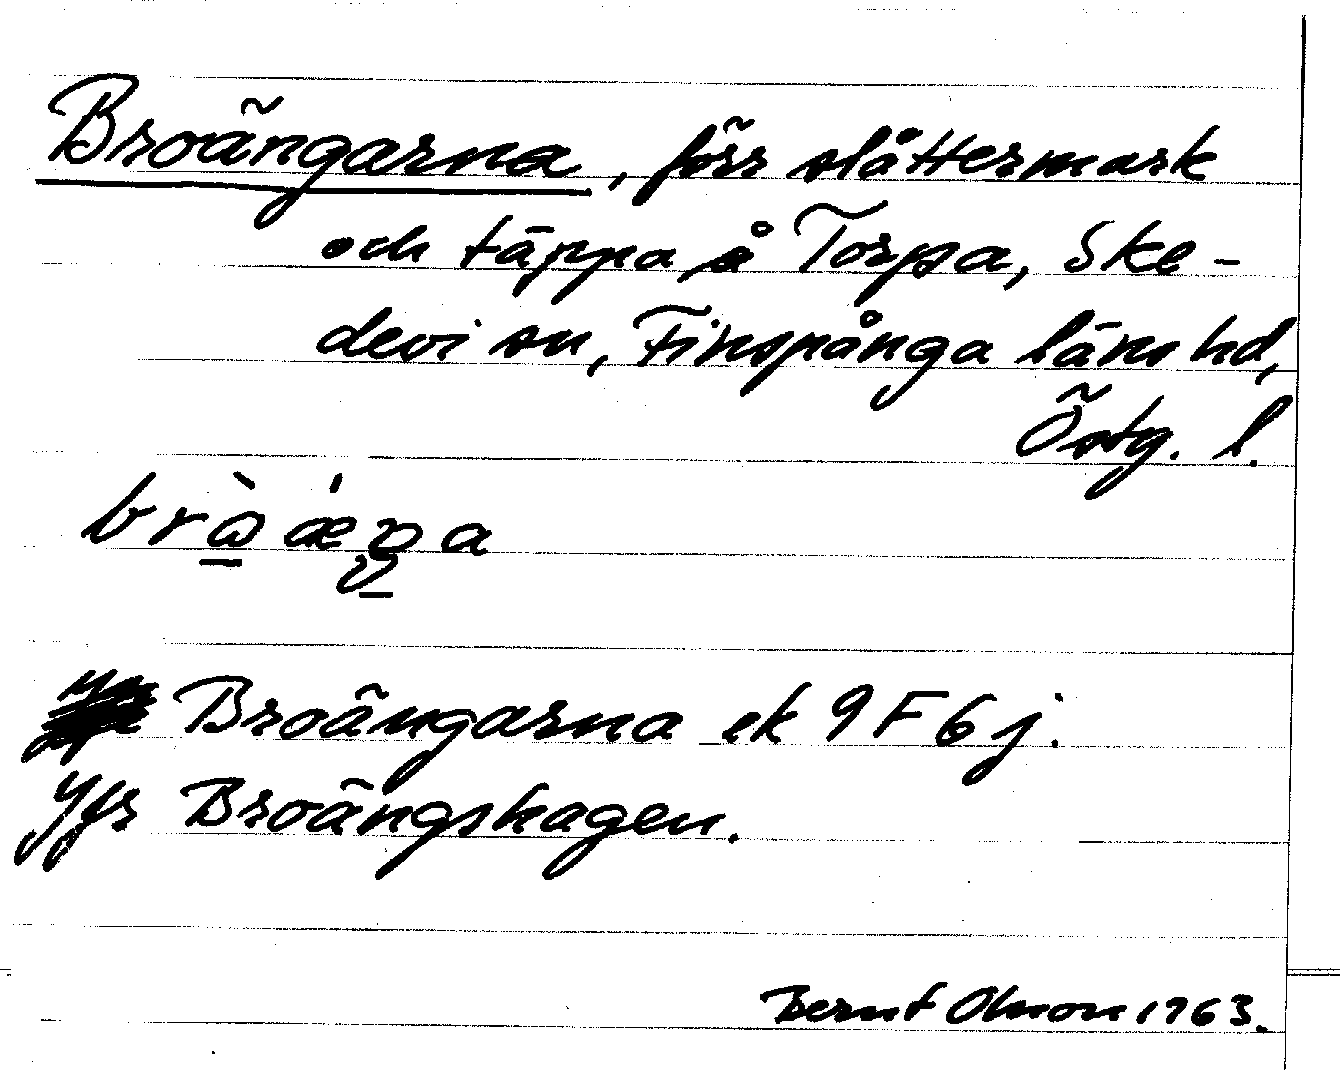 Broängarna, förr slåttermark
och täppa å Torpa, Ske-
devi sn, Finspånga läns hd,
Östg. l.
Broängarna ek 9F6j.
Jfr Broängshagen.
Bernt Olsson 1963.